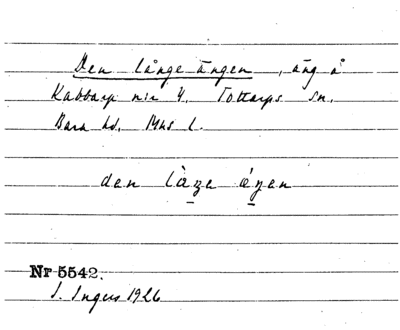 Den långe ängen, äng å
Kabbarp n:r 4. Tottarps sn.
Bara hd. Mhs l.
den làŋe áŋen
Nr 5542.
S. Ingers 1926